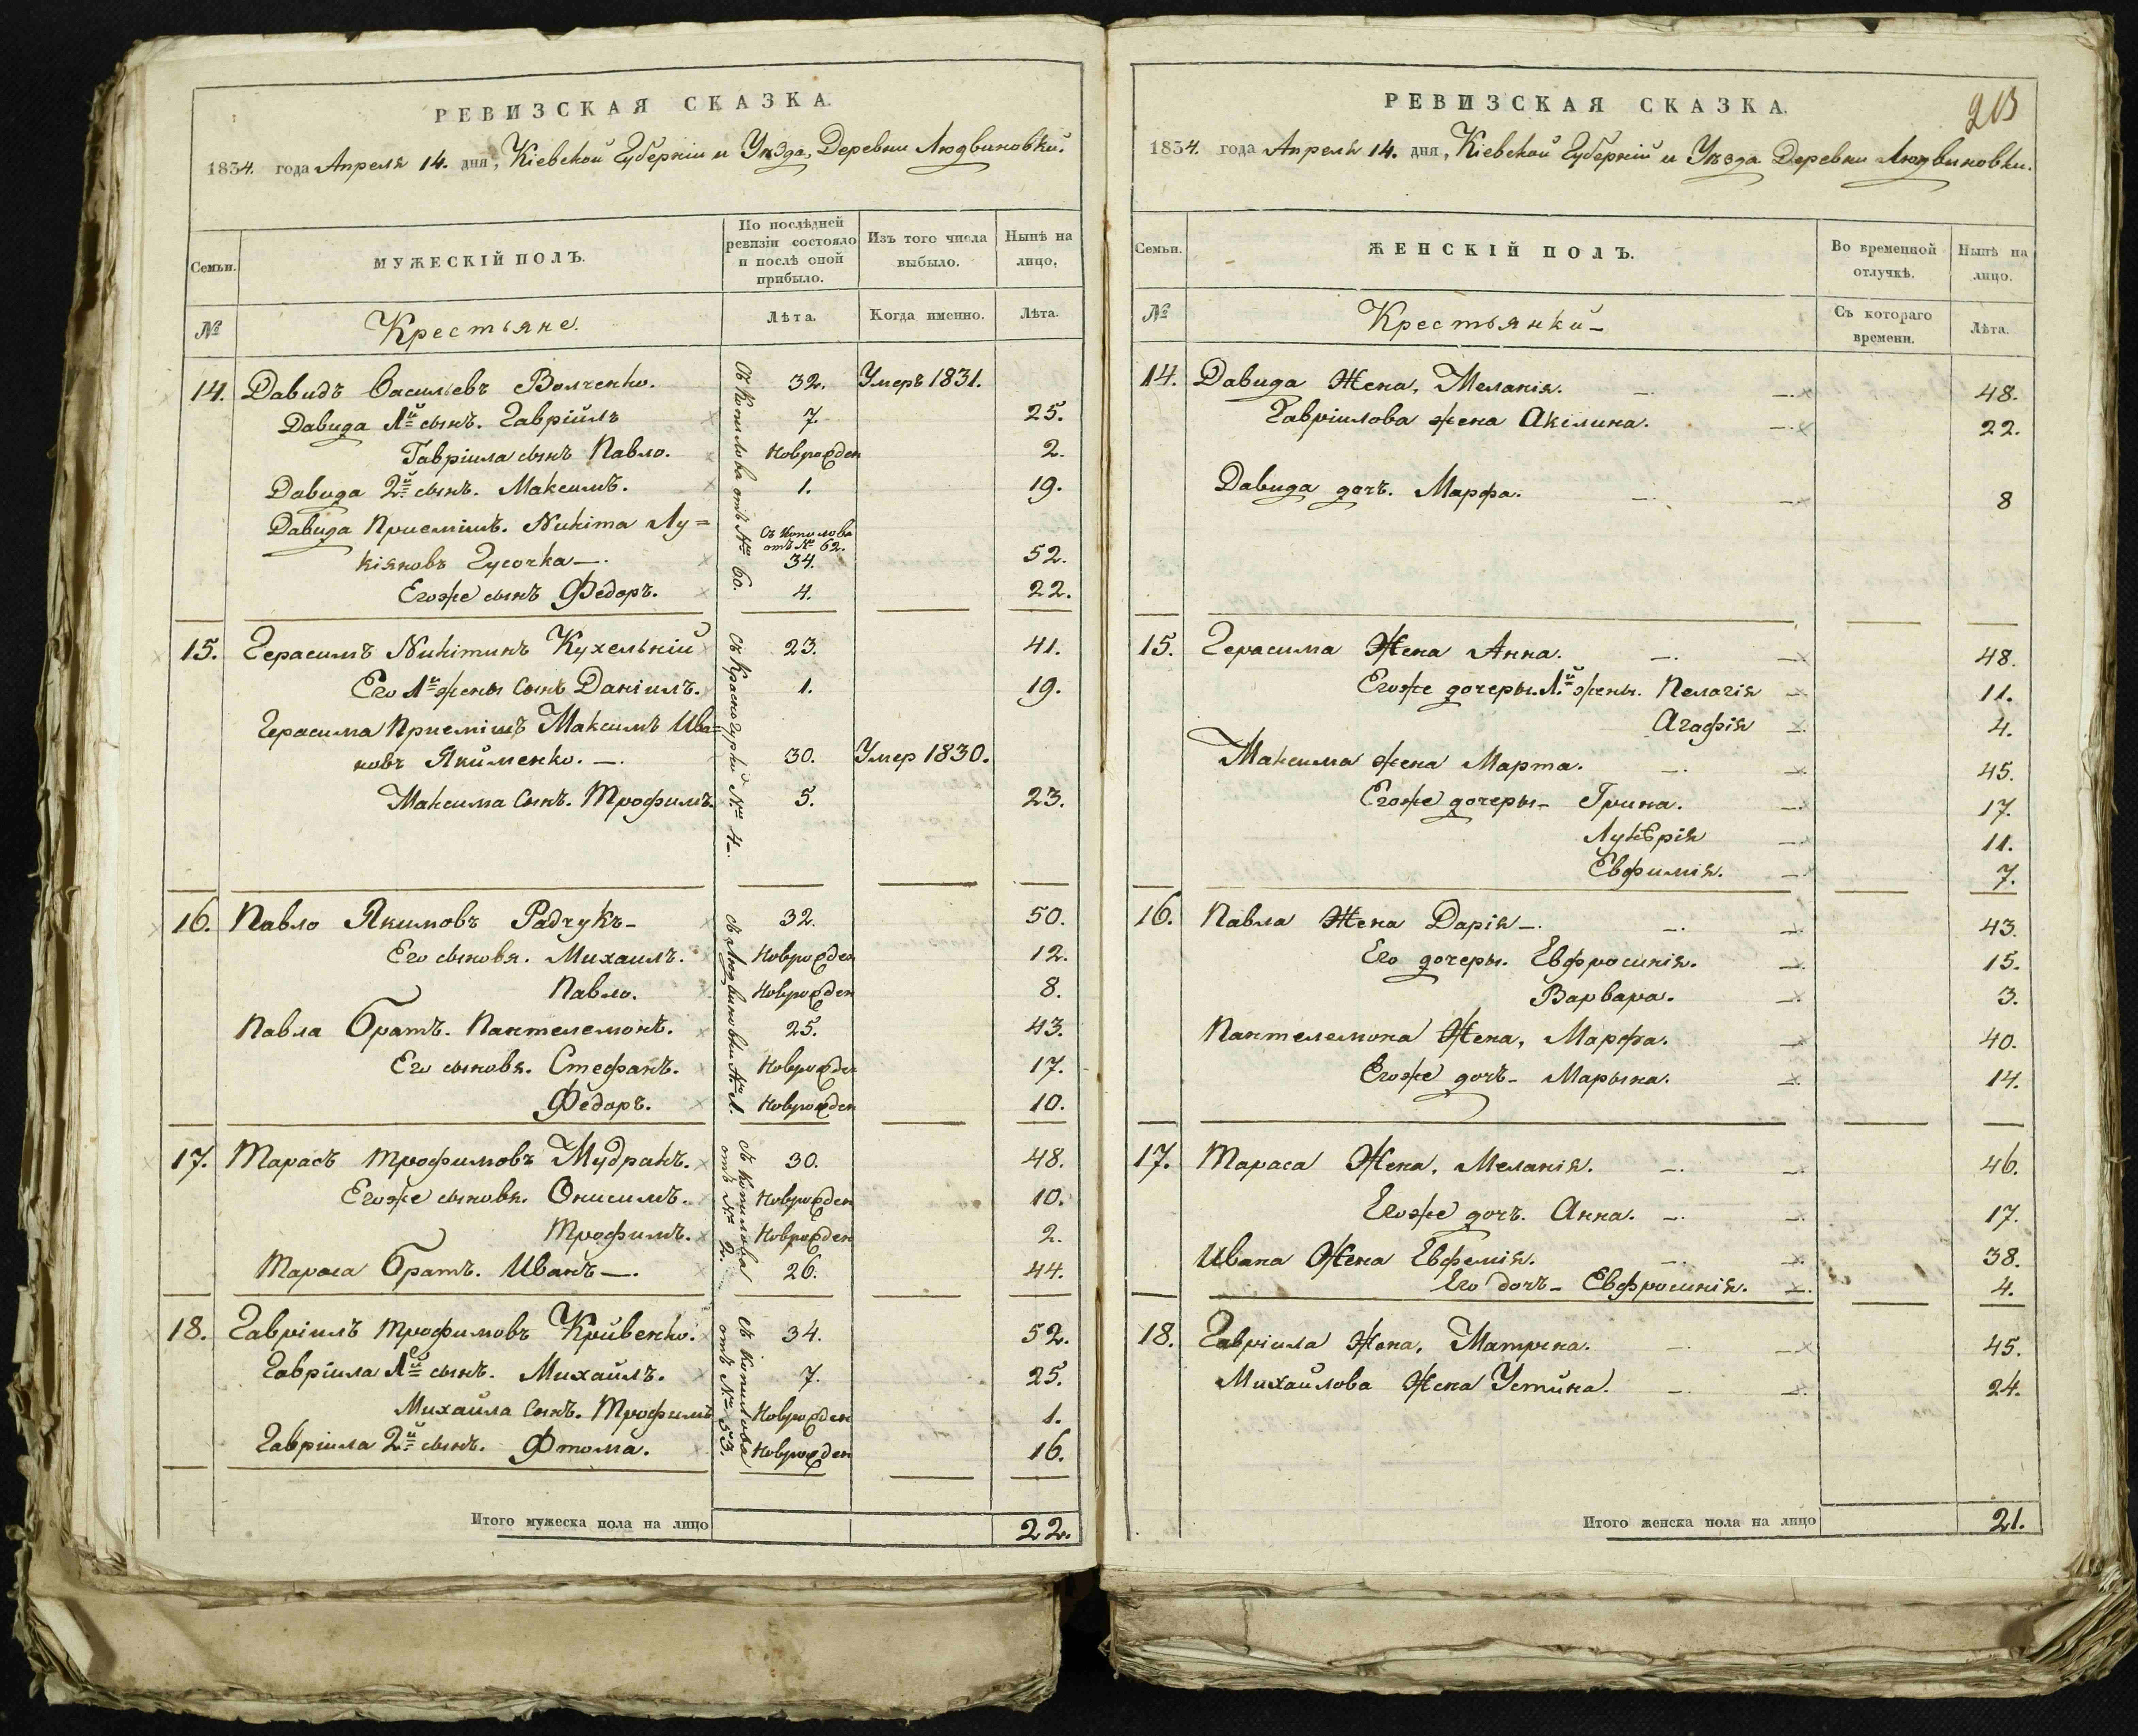 РЕВИЗСКАЯ СКАЗКА.
1834. года Апреля 14. дня, Кіевской Губерніи и Уѣзда, Деревни Людвиновки.
Семьи.
МУЖЕСКІЙ ПОЛЪ.
По послѣдней ревизіи состояло и послѣ оной прибыло.
Изъ того числа выбыло.
Нынѣ на лицо.
№
Крестьяне.
Лѣта.
Когда именно.
Лѣта.
Съ Копилова отъ № 60.
14. Давидъ Васильевъ Волченко. 32. Умеръ 1831.
Давида 1й сынъ. Гавріилъ 7. 25.
Гавріила сынъ Павло. Новрожден 2.
Давида 2й сынъ. Максимъ. 1. 19.
Давида Приемішъ. Никіта Лу=
Съ Копилова отъ № 62.
кіяновъ Гусочка—. 34. 52.
Егоже сынъ Федоръ. 4. 22.
Съ Красногурки № 4.
15. Герасимъ Никітинъ Кухельній 23. 41.
Его 1й жены Сынъ Даніилъ. 1. 19.
Герасима Приемішъ Максимъ Ива=
новъ Якименко. —. 30. Умер 1830.
Максима Сынъ. Трофимъ. 5. 23.
Съ Людвиновки № 1.
16. Павло Якимовъ Радчукъ- 32. 50.
Его сыновя. Михаилъ. Новрожден 12.
Павло. Новрожден 8.
Павла братъ. Пантелемонъ. 25. 43.
Его сыновя. Стефанъ. Новрожден 17.
Федоръ. Новрожден 10.
Съ Копилова отъ № 2.
17. Тарасъ Трофимовъ Мудракъ. 30. 48.
Егоже сыновя. Онисимъ. Новрожден 10.
Трофимъ. Новрожден 2.
Тараса братъ. Иванъ—. 26. 44.
Съ Копилова отъ № 53.
18. Гавріилъ Трофимовъ Кривенко. 34. 52.
Гавріила 1й сынъ. Михайлъ. 7. 25.
Михайла Сынъ. Трофимъ Новрожден 1.
Гавріила 2й сынъ. Фтома. Новрожден 16.
Итого мужеска пола на лицо 22.
213
РЕВИЗСКАЯ СКАЗКА.
1834. года Апреля 14. дня, Кіевской Губерній и Уѣзда Деревни Людвиновки.
Семьи.
ЖЕНСКІЙ ПОЛЪ.
Во временной отлучкѣ.
Нынѣ на лицо.
№
Крестьянки-
Съ котораго времени.
Лѣта.
14. Давида Жена, Меланія. 48.
Гавріилова жена Акілина. 22.
Давида дочъ. Марфа. 8
15. Герасима Жена Анна. 48.
Егоже дочеры. 1й жены. Пелагія 11.
Агафія 4.
Максима жена Марта. 45.
Егоже дочеры- Ірина. 17.
Лукѣрія 11.
Евфимія. 7.
16. Павла Жена Дарія-. 43.
Его дочеры. Евфросинія. 15.
Варвара. 3.
Пантелемона Жена, Марфа. 40.
Егоже дочъ- Марына. 14.
17. Тараса Жена, Меланія. 46.
Егоже дочъ. Анна. 17.
Ивана Жена Евфемія. 38.
Его дочъ- Евфросинія. 4.
18. Гавріила Жена, Матрена. 45.
Михайлова Жена Устина. 24.
Итого женска пола на лицо 21.